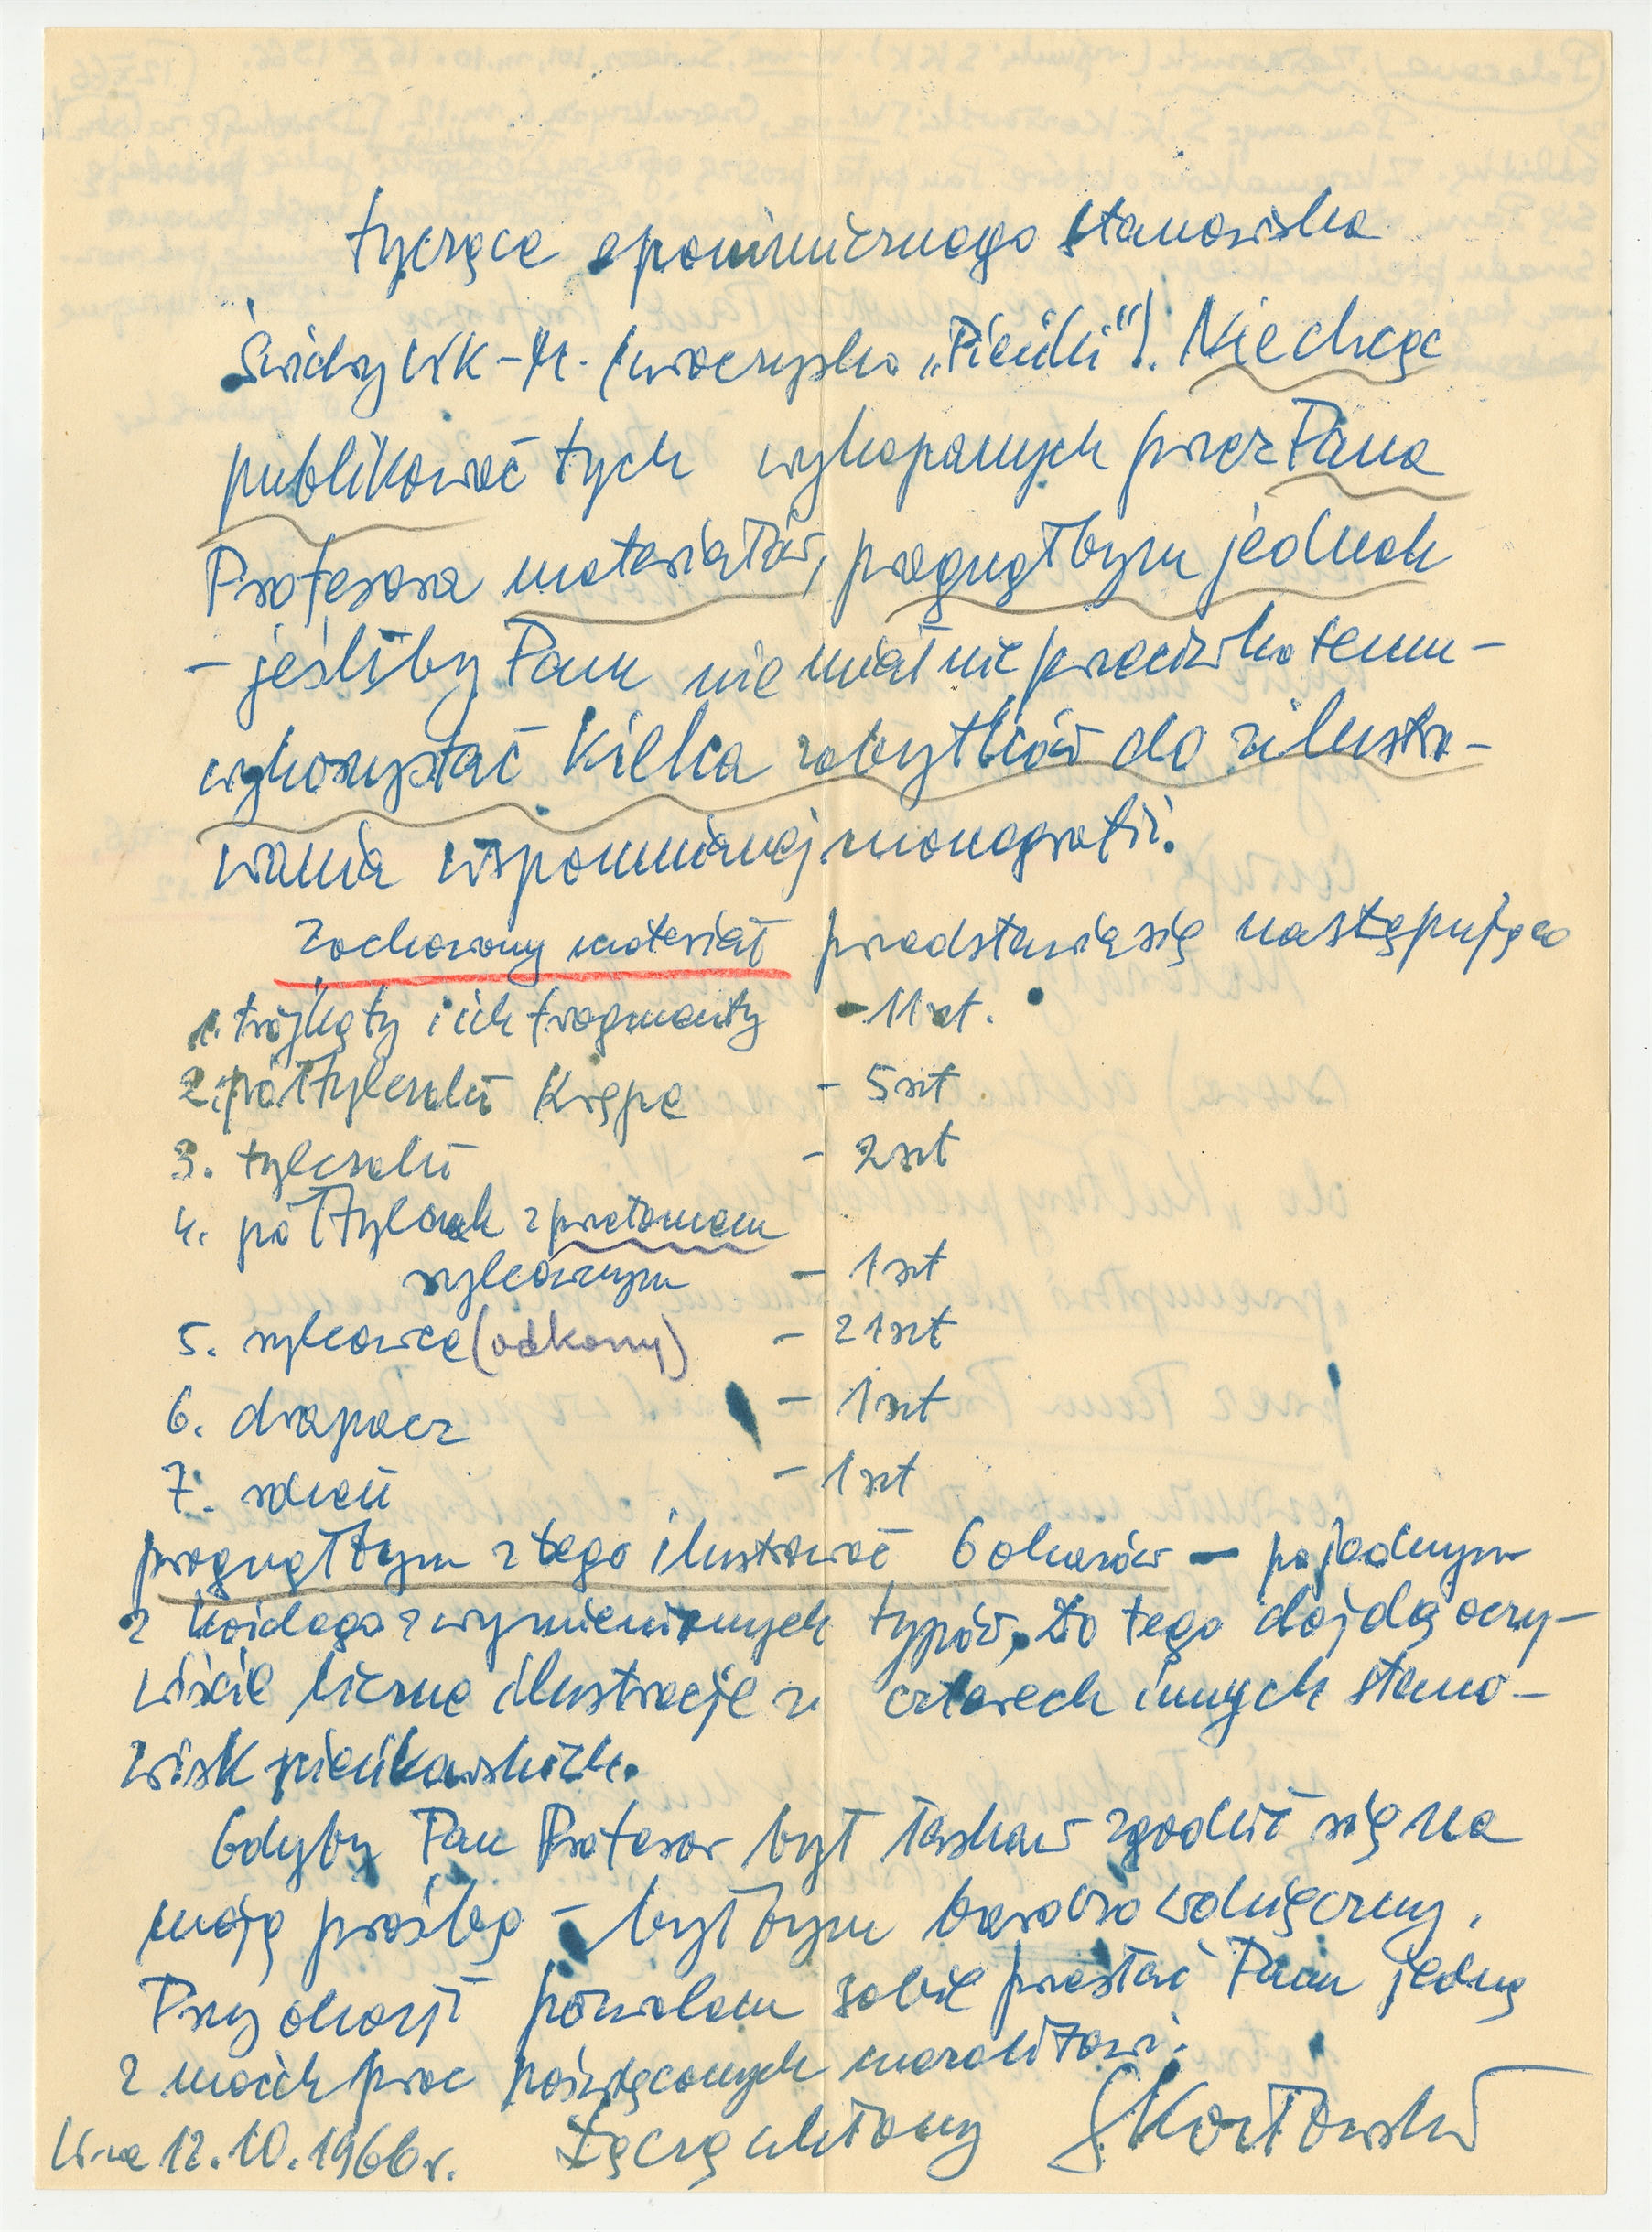 tyczące eponimicznego stanowiska
Świdry Wk-M. (uroczysko „Pieńki"). Nie chcąc
publikować tych wykopanych przez Pana
Profesora materiałów, pragnąłbym jednak
– jeśliby Pan nie miał nic przeciwko temu –
wykorzystać kilka zabytków do zilustro-
wania wspomnianej monografii.
Zachowany materiał przedstawia się następująco
1. trójkąty i ich fragmenty – 11 szt.
2. półtylczaki Krępe – 5 szt
3. tylczaki – 2 szt
4. półtylczak z przełomem
rylcowczym – 1 szt
5. rylcowce (odkomy) – 21 szt
6. drapacz – 1 szt
7. rdzeń – 1 szt
pragnąłbym z tego ilustrować 6 okazów – po jednym
z każdego z wymienionych typów. Do tego dojdą oczy-
wiście liczne ilustracje z czterech innych stano-
wisk
Gdyby Pan Profesor był łaskaw zgodzić się na
moją prośbę – byłbym bardzo wdzięczny.
Przy okazji pozwalam sobie przesłać Panu jedną
z moich prac poświęconych mezolitowi.
W-wa 12.10.1966r. Łączę ukłony